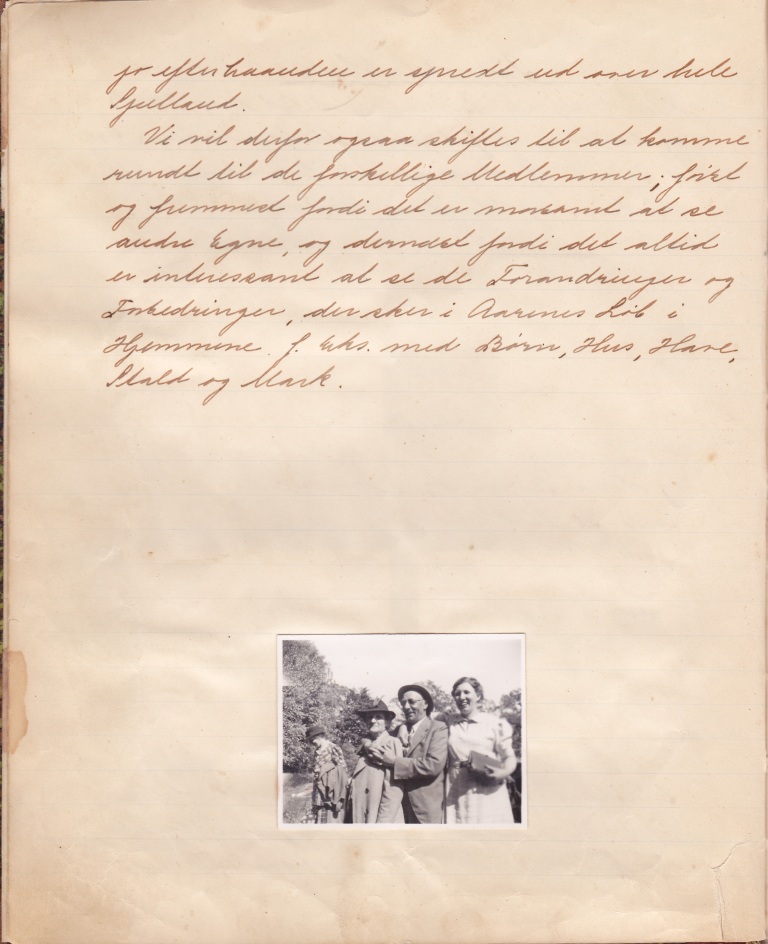 jo efterhaanden er spredt ud over hele
Sjælland.
Vi vil derfor ogsaa skiftes til at komme
rundt til de forskellige Medlemmer; først
og fremmest fordi det er morsomt at se
andre Egne, og dernæst fordi det altid
er interessant at se de Forandringer og
Forbedringer, der sker i Aarenes Løb i
Hjemmene f. Eks. med Børn, Hus, Have,
Stald og Mark.